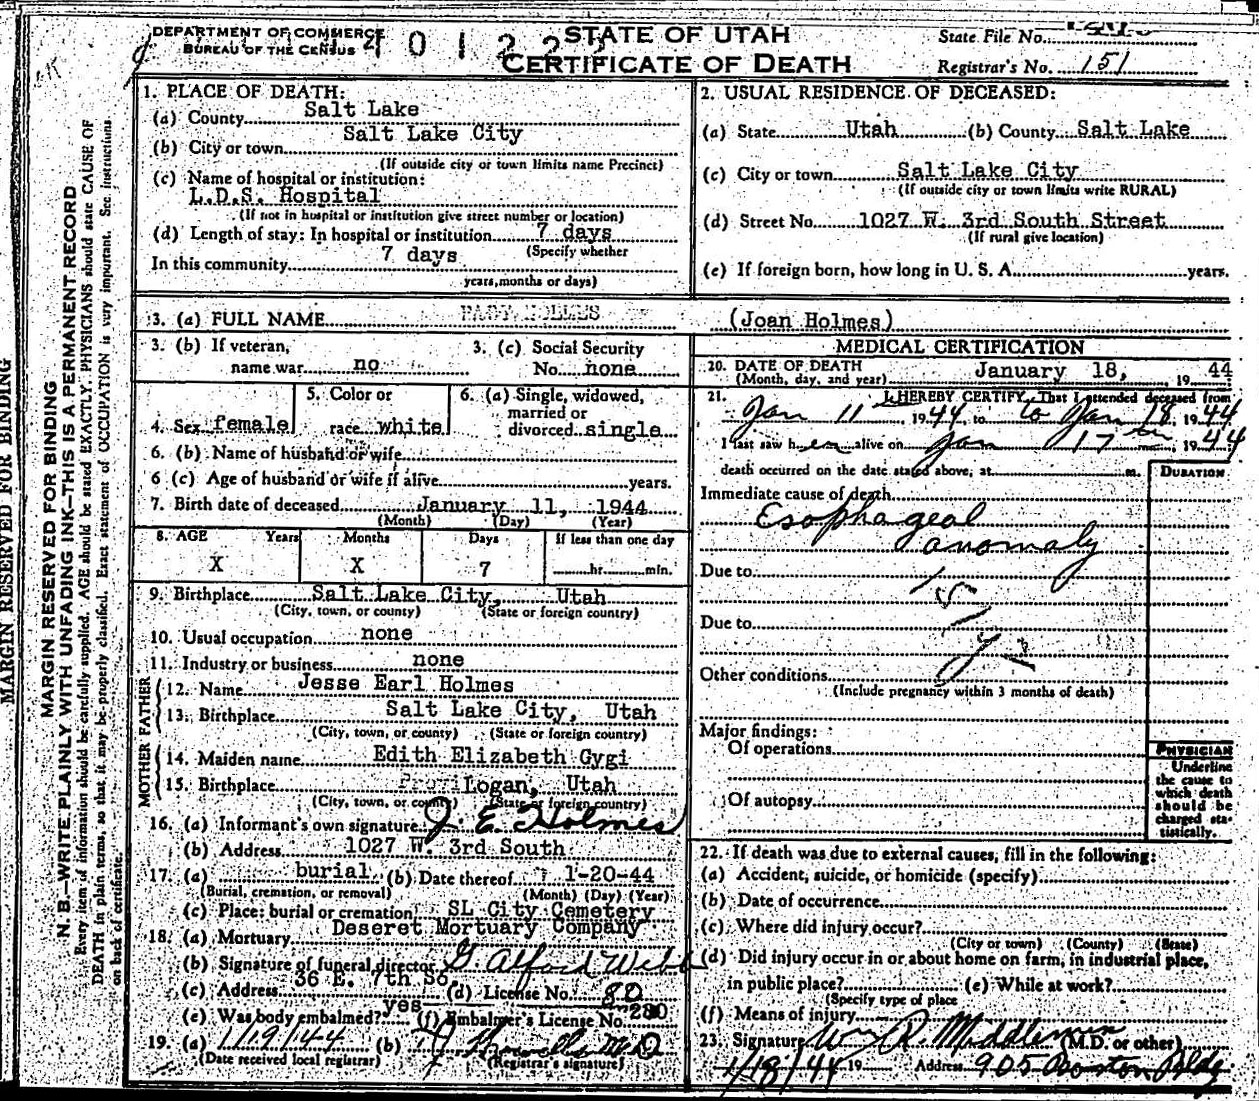 DEPARTMENT OF COMMERCE
BUREAU OF THE CENSUS
STATE OF UTAH
CERTIFICATE OF DEATH
State File No.
Registrar's No. 151
MARGIN RESERVED FOR BINDING
MARGIN RESERVED FOR BINDING
N. B.—WRITE PLAINLY WITH UNFADING INK—THIS IS A PERMANENT RECORD
Every item of information should be carefully supplied. AGE should be stated EXACTLY. PHYSICIANS should state CAUSE OF
DEATH in plain terms, so that it may be properly classified. Exact statement of OCCUPATION is very important. See instructions
on back of certificate.
1. PLACE OF DEATH:
(a) County Salt Lake
(b) City or town Salt Lake City
(If outside city or town limits name Precinct)
(c) Name of hospital or institution:
L.D.S. Hospital
(If not in hospital or institution give street number or location)
(d) Length of stay: In hospital or institution 7 days
(Specify whether
In this community 7 days
years, months or days)
2. USUAL RESIDENCE OF DECEASED:
(a) State Utah (b) County Salt Lake
(c) City or town Salt Lake City
(If outside city or town limits write RURAL)
(d) Street No. 1027 W. 3rd South Street
(If rural give location)
(e) If foreign born, how long in U. S. A. years.
3. (a) FULL NAME BABY HOLMES (Joan Holmes)
3. (b) If veteran, name war no
3. (c) Social Security No. none
4. Sex female
5. Color or race white
6. (a) Single, widowed, married or divorced single
6. (b) Name of husband or wife
6 (c) Age of husband or wife if alive years.
7. Birth date of deceased January 11, 1944
(Month) (Day) (Year)
8. AGE Years Months Days If less than one day
X X 7 hr. min.
9. Birthplace Salt Lake City, Utah
(City, town, or county) (State or foreign country)
10. Usual occupation none
11. Industry or business none
FATHER
12. Name Jesse Earl Holmes
13. Birthplace Salt Lake City, Utah
(City, town, or county) (State or foreign country)
MOTHER
14. Maiden name Edith Elizabeth Gygi
15. Birthplace Logan, Utah
(City, town, or county) (State or foreign country)
16. (a) Informant's own signature J. E. Holmes
(b) Address 1027 W. 3rd South
17. (a) burial (b) Date thereof 1-20-44
(Burial, cremation, or removal) (Month) (Day) (Year)
(c) Place: burial or cremation SL City Cemetery
18. (a) Mortuary Deseret Mortuary Company
(b) Signature of funeral director G Alford Webb
(c) Address 36 E. 7th So. (d) License No. 80
(e) Was body embalmed? yes (f) Embalmer's License No. 280
19. (a) 1/19/44 (b) M D
(Date received local registrar) (Registrar's signature)
MEDICAL CERTIFICATION
20. DATE OF DEATH January 18, 19 44
(Month, day, and year)
21. I HEREBY CERTIFY, That I attended deceased from
Jan 11 1944, to Jan 18, 1944
I last saw her alive on Jan 17 th 1944
death occurred on the date stated above, at m.
DURATION
Immediate cause of death
Esophageal
anomaly
Due to
Due to
Other conditions
(Include pregnancy within 3 months of death)
Major findings:
Of operations
Of autopsy
PHYSICIAN
Underline
the cause to
which death
should be
charged sta-
tistically.
22. If death was due to external causes, fill in the following:
(a) Accident, suicide, or homicide (specify)
(b) Date of occurrence
(c) Where did injury occur?
(City or town) (County) (State)
(d) Did injury occur in or about home on farm, in industrial place,
in public place? (e) While at work?
(Specify type of place
(f) Means of injury
23. Signature Wm R. Middleman (M.D. or other)
1/18/44 19 Address 905 Boston Bldg